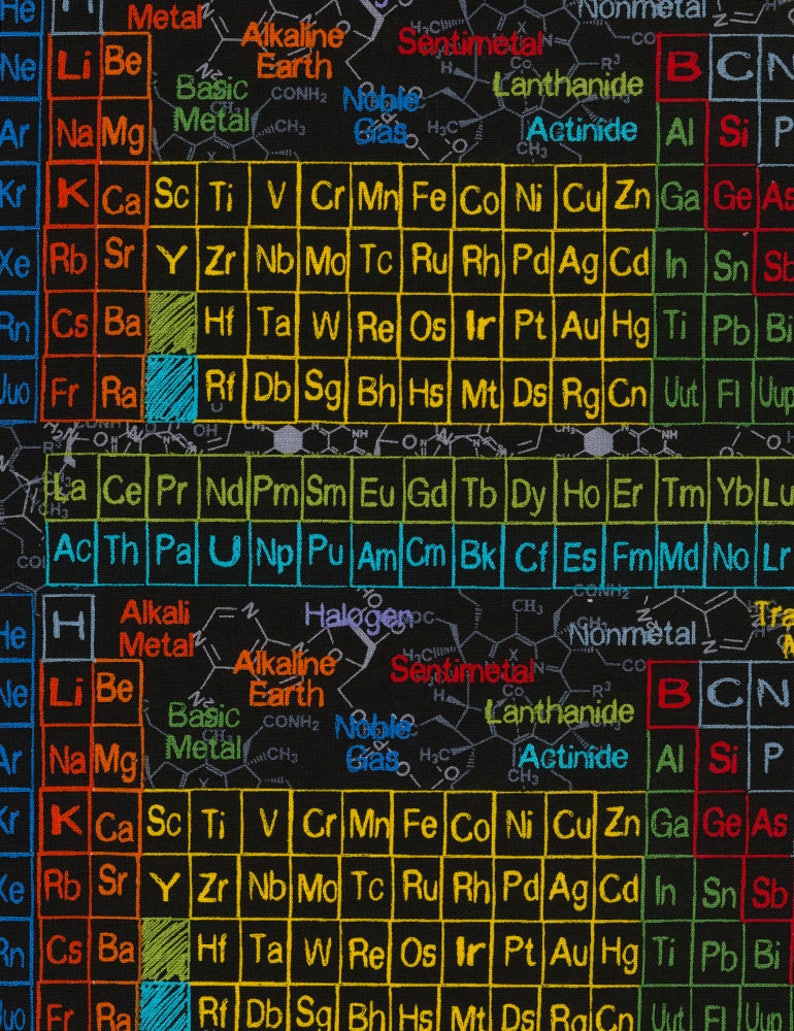 He H Metal Nonmetal
Alkaline Earth Sentimetal
Ne Li Be Basic Metal CONH₂ Noble Gas Co R³ Lanthanide B C N
Ar Na Mg CH₃ H₃C Actinide CH₃ Al Si P
Kr K Ca Sc Ti V Cr Mn Fe Co Ni Cu Zn Ga Ge As
Xe Rb Sr Y Zr Nb Mo Tc Ru Rh Pd Ag Cd In Sn Sb
Rn Cs Ba Hf Ta W Re Os Ir Pt Au Hg Ti Pb Bi
Uuo Fr Ra Rf Db Sg Bh Hs Mt Ds Rg Cn Uut Fl Uup
La Ce Pr Nd Pm Sm Eu Gd Tb Dy Ho Er Tm Yb Lu
Ac Th Pa U Np Pu Am Cm Bk Cf Es Fm Md No Lr
He H Alkali Metal Halogen CH₃ CONH₂ Nonmetal
Alkaline Earth Sentimetal
Ne Li Be Basic Metal CONH₂ Noble Gas Co R³ Lanthanide B C N
Ar Na Mg CH₃ H₃C Actinide CH₃ Al Si P
Kr K Ca Sc Ti V Cr Mn Fe Co Ni Cu Zn Ga Ge As
Xe Rb Sr Y Zr Nb Mo Tc Ru Rh Pd Ag Cd In Sn Sb
Rn Cs Ba Hf Ta W Re Os Ir Pt Au Hg Ti Pb Bi
Uuo Fr Ra Rf Db Sg Bh Hs Mt Ds Rg Cn Uut Fl Uup